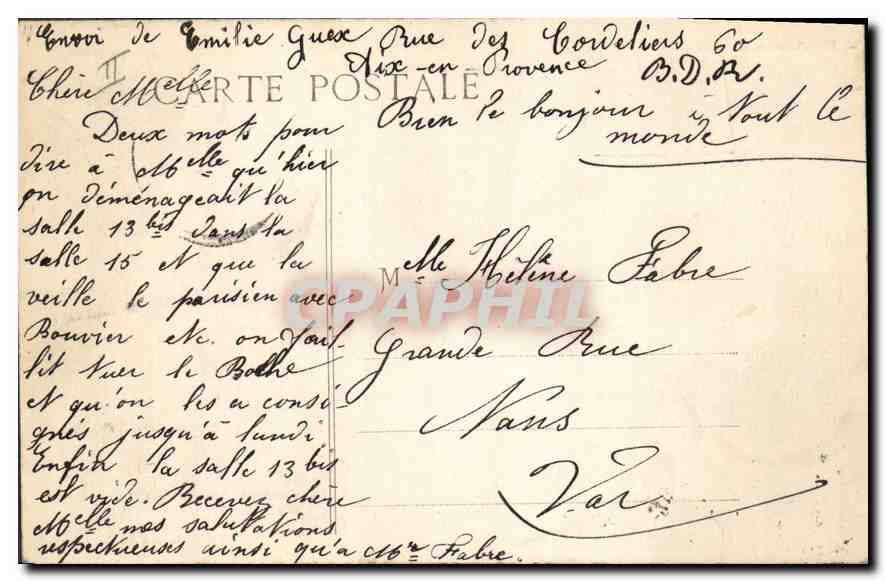 Envoi de Emilie Guex Rue des Cordeliers 60
Aix-en Provence B.D.R.
CARTE POSTALE
II
Bien le bonjour à tout le
monde
Chère Melle
Deux mots pour
dire à Melle qu'hier
on déménageait la
salle 13 bis dans la
salle 15 et que la
veille le parisien avec
Bouvier etc. on fail-
lit tuer le
et qu'on les a consi-
gnés jusqu'à lundi
Enfin la salle 13 bis
est vide. Recevez chère
Melle nos salutations
respectueuses ainsi qu'a Mr Fabre.
Melle Hélène Fabre
Grande Rue
Nans
Var
CPAPHIL